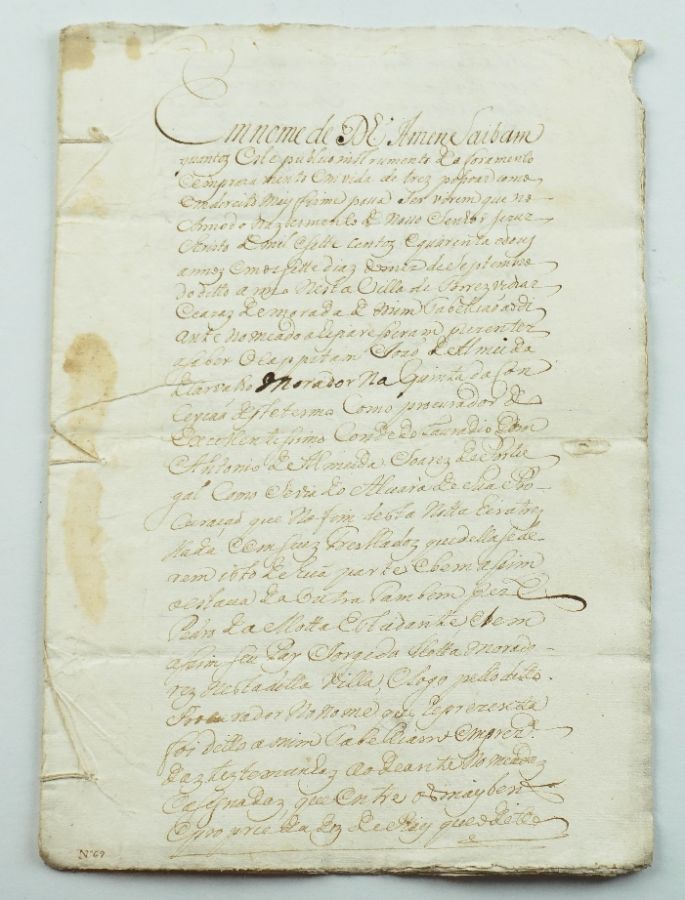 Em nome de Ds Amen Saibam
quantos este publico instrumento de aforamento
Emprazamento Em vida de trez pessoas ou me
Em dereito mais firme possa Ser virem que no
Anno do Nazcimento de Nosso Senhor
Christo de mil e sette centos e quarenta e dous
annos em os sette dias do mes de Septembro
do ditto anno Nesta Villa de Torrez vedraz
e cazaz de morada de mim Taballião ao di
ante Nomeado ahi pareseram prezentez
a saber O cappitam João de Almeida
de Carvalho Morador Na Quinta da Con
ceição deste termo Como procurador do
Excellentissimo Conde do Lavradio Dom
Antonio de Almeida Soarez de Portu
gal Como Seria do Alvará de sua Pro-
curação que No fim desta Notta Hira tres
ladada Com seuz tresladoz que della se de-
rem isto de huã parte e bem assim
estava da outra tambem prezente
Pedro da Motta Estudante e bem
assim seu Pay Jorge da Motta Morado-
rez Nesta ditta Villa, e logo pello ditto
Procurador No Nome que reprezenta
foi ditto a mim Taballiam Em prez.ca
daz testemunhaz ao deante Nomeadaz
e asignadaz que Entre os mais benz
e propriedadez de Raiz que o ditto
Nº 69